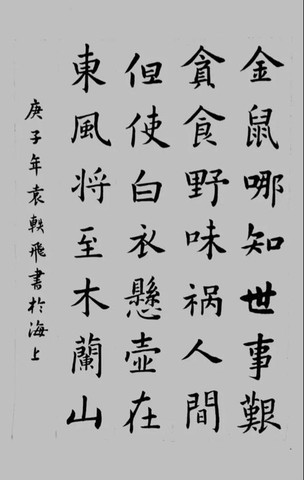 金鼠哪知世事艱
貪食野味祸人間
但使白衣懸壺在
東風将至木蘭山
庚子年袁軼飛書於海上